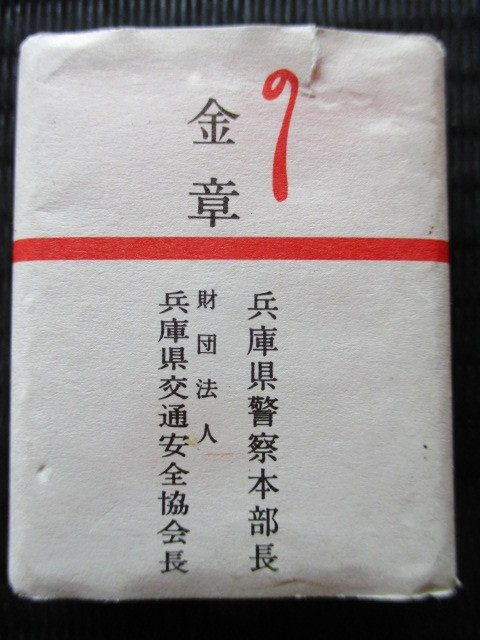 金章
兵庫県警察本部長
財団法人
兵庫県交通安全協会長